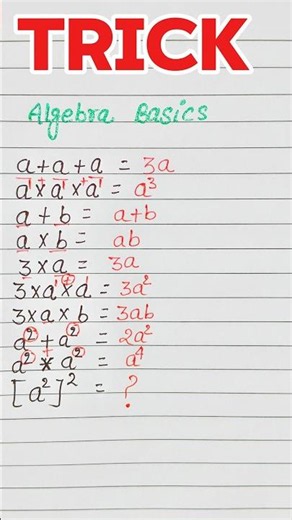 TRICK
Algebra Basics
a + a + a = 3a
a¹ × a¹ × a¹ = a³
a + b = a+b
a × b = ab
3 × a = 3a
3 × a¹ × a¹ = 3a²
3 × a × b = 3ab
a² + a² = 2a²
a² * a² = a⁴
[a²]² = ?